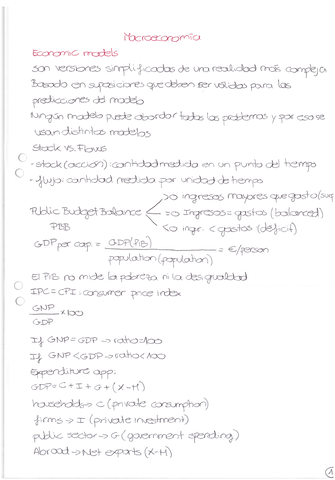 Macroeconomía
Economic models
son versiones simplificadas de una realidad más compleja
Basado en suposiciones que deben ser válidas para las
predicciones del modelo
Ningún modelo puede abordar todos los problemas y por eso se
usan distintos modelos
Stock vs. Flows
- stock (acción): cantidad medida en un punto del tiempo
- flujo: cantidad medida por unidad de tiempo
>0 ingresos mayores que gasto (sup
Public Budget Balance =0 Ingresos = gastos (balanced)
PBB <0 ingr. < gastos (deficit)
GDP per cap. = GDP (PIB) / population (population) = €/person
El PIB no mide la pobreza ni la desigualdad
IPC = CPI: consumer price index
GNP / GDP x100
If GNP = GDP → ratio = 100
If GNP < GDP → ratio < 100
Expenditure app:
GDP = C + I + G + (X-M)
households → C (private consumption)
firms → I (private investment)
public sector → G (government spending)
Abroad → Net exports (X-M)
1